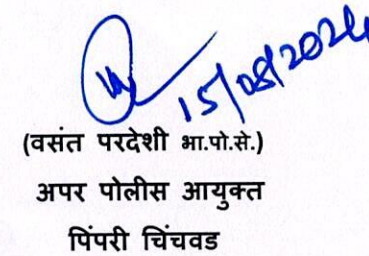 15/08/2024
(वसंत परदेशी भा.पो.से.)
अपर पोलीस आयुक्त
पिंपरी चिंचवड